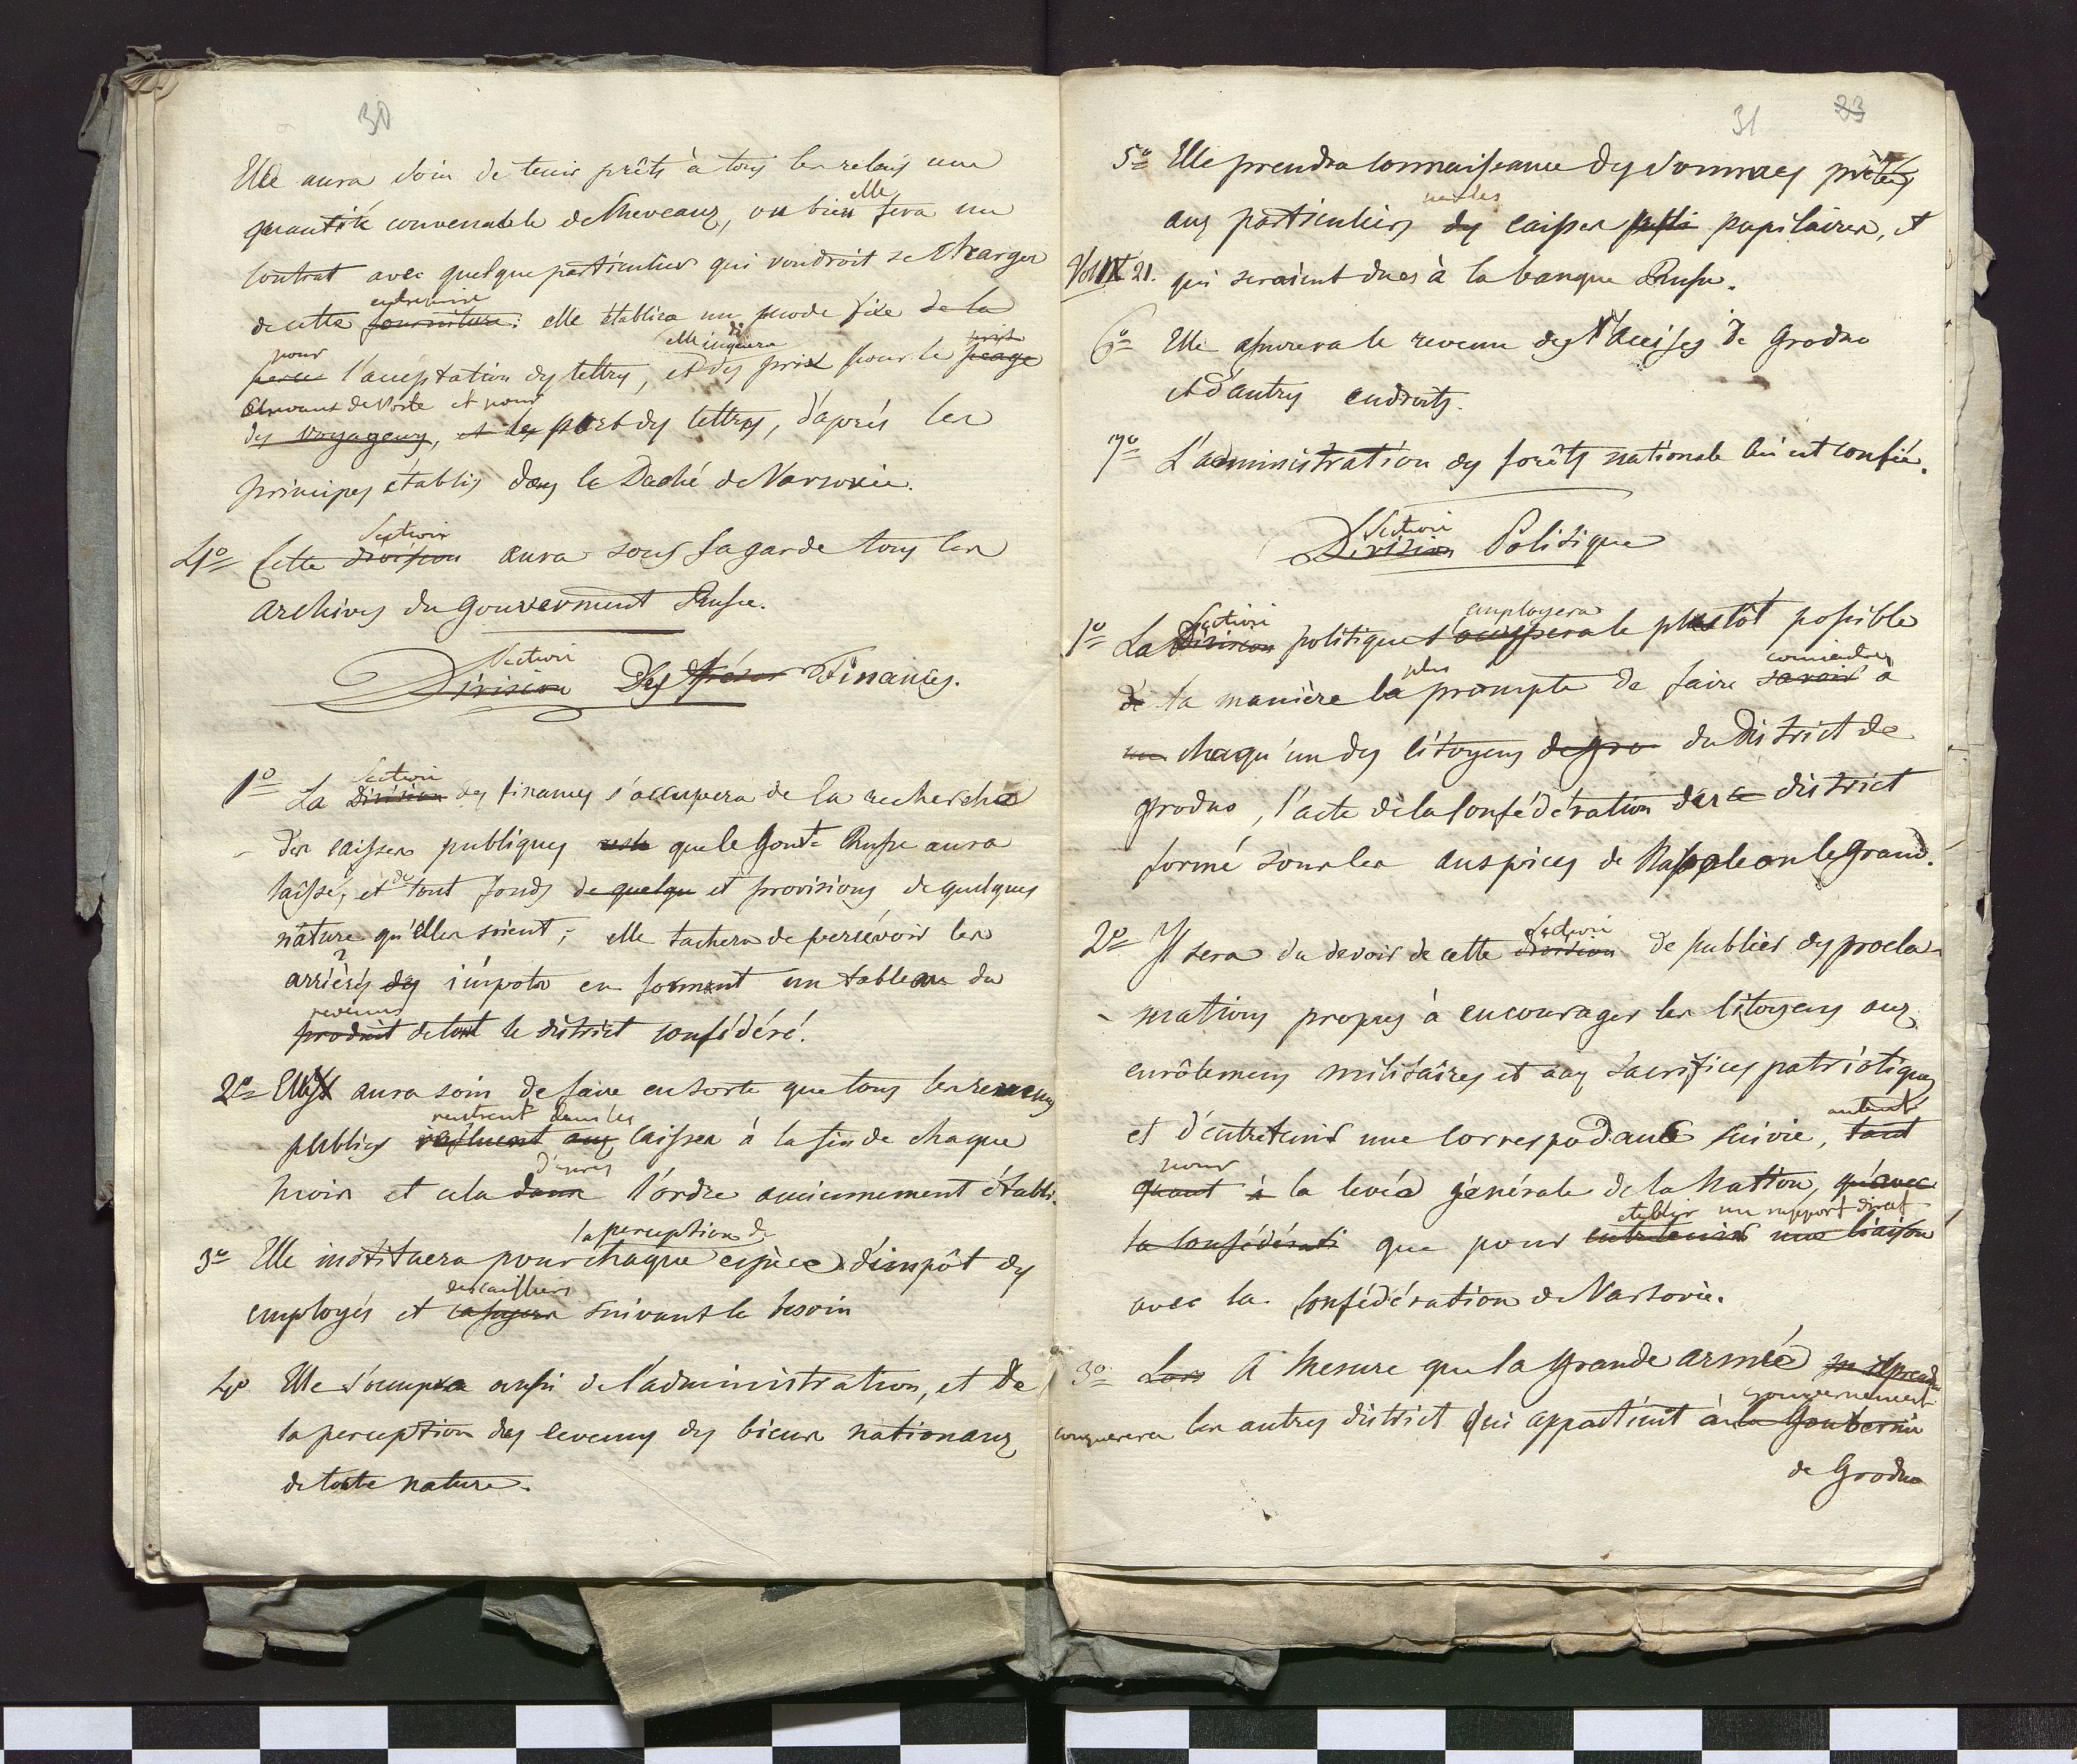 30
Elle aura soin de tenir prêts à tous les relais une
elle
quantité convenable de Chevaux, ou bien fera un
Contrat avec quelque particulier qui voudroit se charger
de cette fourniture: elle établira un mode fixe de la
pour
l'acceptation des lettres, et des prix pour le
et pour
des voyageurs, et le port des lettres, d'après les
principes établis dans le Duché de Varsovie.
Section
4º Cette division aura sous sa garde tous les
archives du Gouvernment Russe.
Section
Division Des trésor Finances.
Section
1º La Division des finances s'occupera de la recherche
des caisses publiques que le Gouvt Russe aura
de
laissé, et tout fonds de quelqu et provisions de quelques
nature qu'elles soient; elle tachera de percévoir les
arriérés des impots en formant un tableau du
revenus
produit de tout le district confédéré.
2º Elle aura soin de faire ensorte que tous les revenus
rentrent dans les
publics refluent aux caisses à la fin de chaque
d'après
mois et cela dans l'ordre anciennement établi.
la perception de
3º Elle instituera pour chaque espèce d'impôt des
des caissiers
employés et suivant le besoin
4º Elle s'occupera aussi de l'administration, et de
la perception des revenus des biens nationaux
de toute nature.
31 23
5º Elle prendra connaissance des sommes prêtées
aux particuliers des caisses pupilaires, et
Vol IX 21. qui seraient dues à la banque Russe.
6º Elle assurera le revenu des Accises de Grodno
et d'autres endroits.
7º L'administration des forêts nationale lui est confiée.
Section
Division Politique
Section employera
1º La Division politique s'occupera le plustôt possible
plus connaitre
de la manière la prompte de faire savoir à
un chaqu'un des Citoyens de gro du District de
Grodno, l'acte de la Confédération de ce district
formé sous les auspices de Napoleon le Grand.
Section
2º Il sera du devoir de cette division de publier des procla-
mations propres à encourager les Citoyens aux
enrôlemens militaires et aux sacrifices patriotiques
autant
et d'entretenir une Correspodance suivie, tant
pour
quant à la levée générale de la Nation, qu'avec
etablir un rapport direct
la Confédérati que pour entretenir une liaison
avec la Confédération de Varsovie.
3º Lors A mesure que la Grande armée
gouvernement
conquerera les autres district qui appartient à la Goubernie
de Grodno